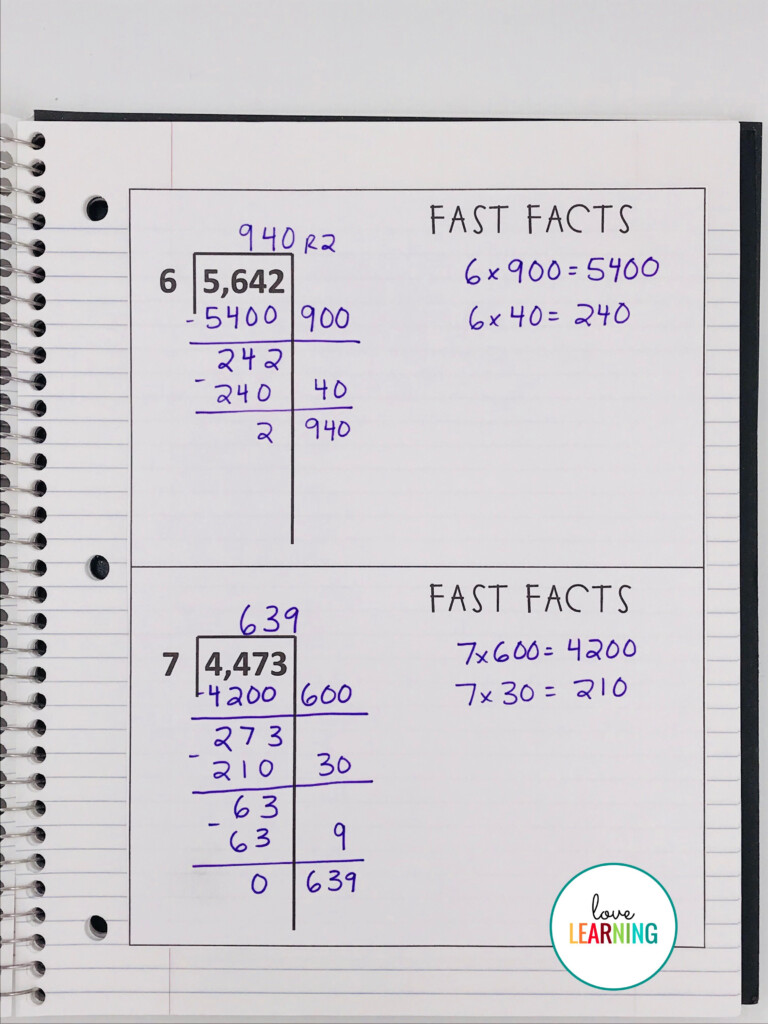 FAST FACTS
940 R2
6 5,642
6 x 900 = 5400
- 5400 900
6 x 40 = 240
242
- 240 40
2 940
FAST FACTS
639
7 4,473
7x600 = 4200
- 4200 600
7 x 30 = 210
273
- 210 30
63
- 63 9
0 639
love
LEARNING